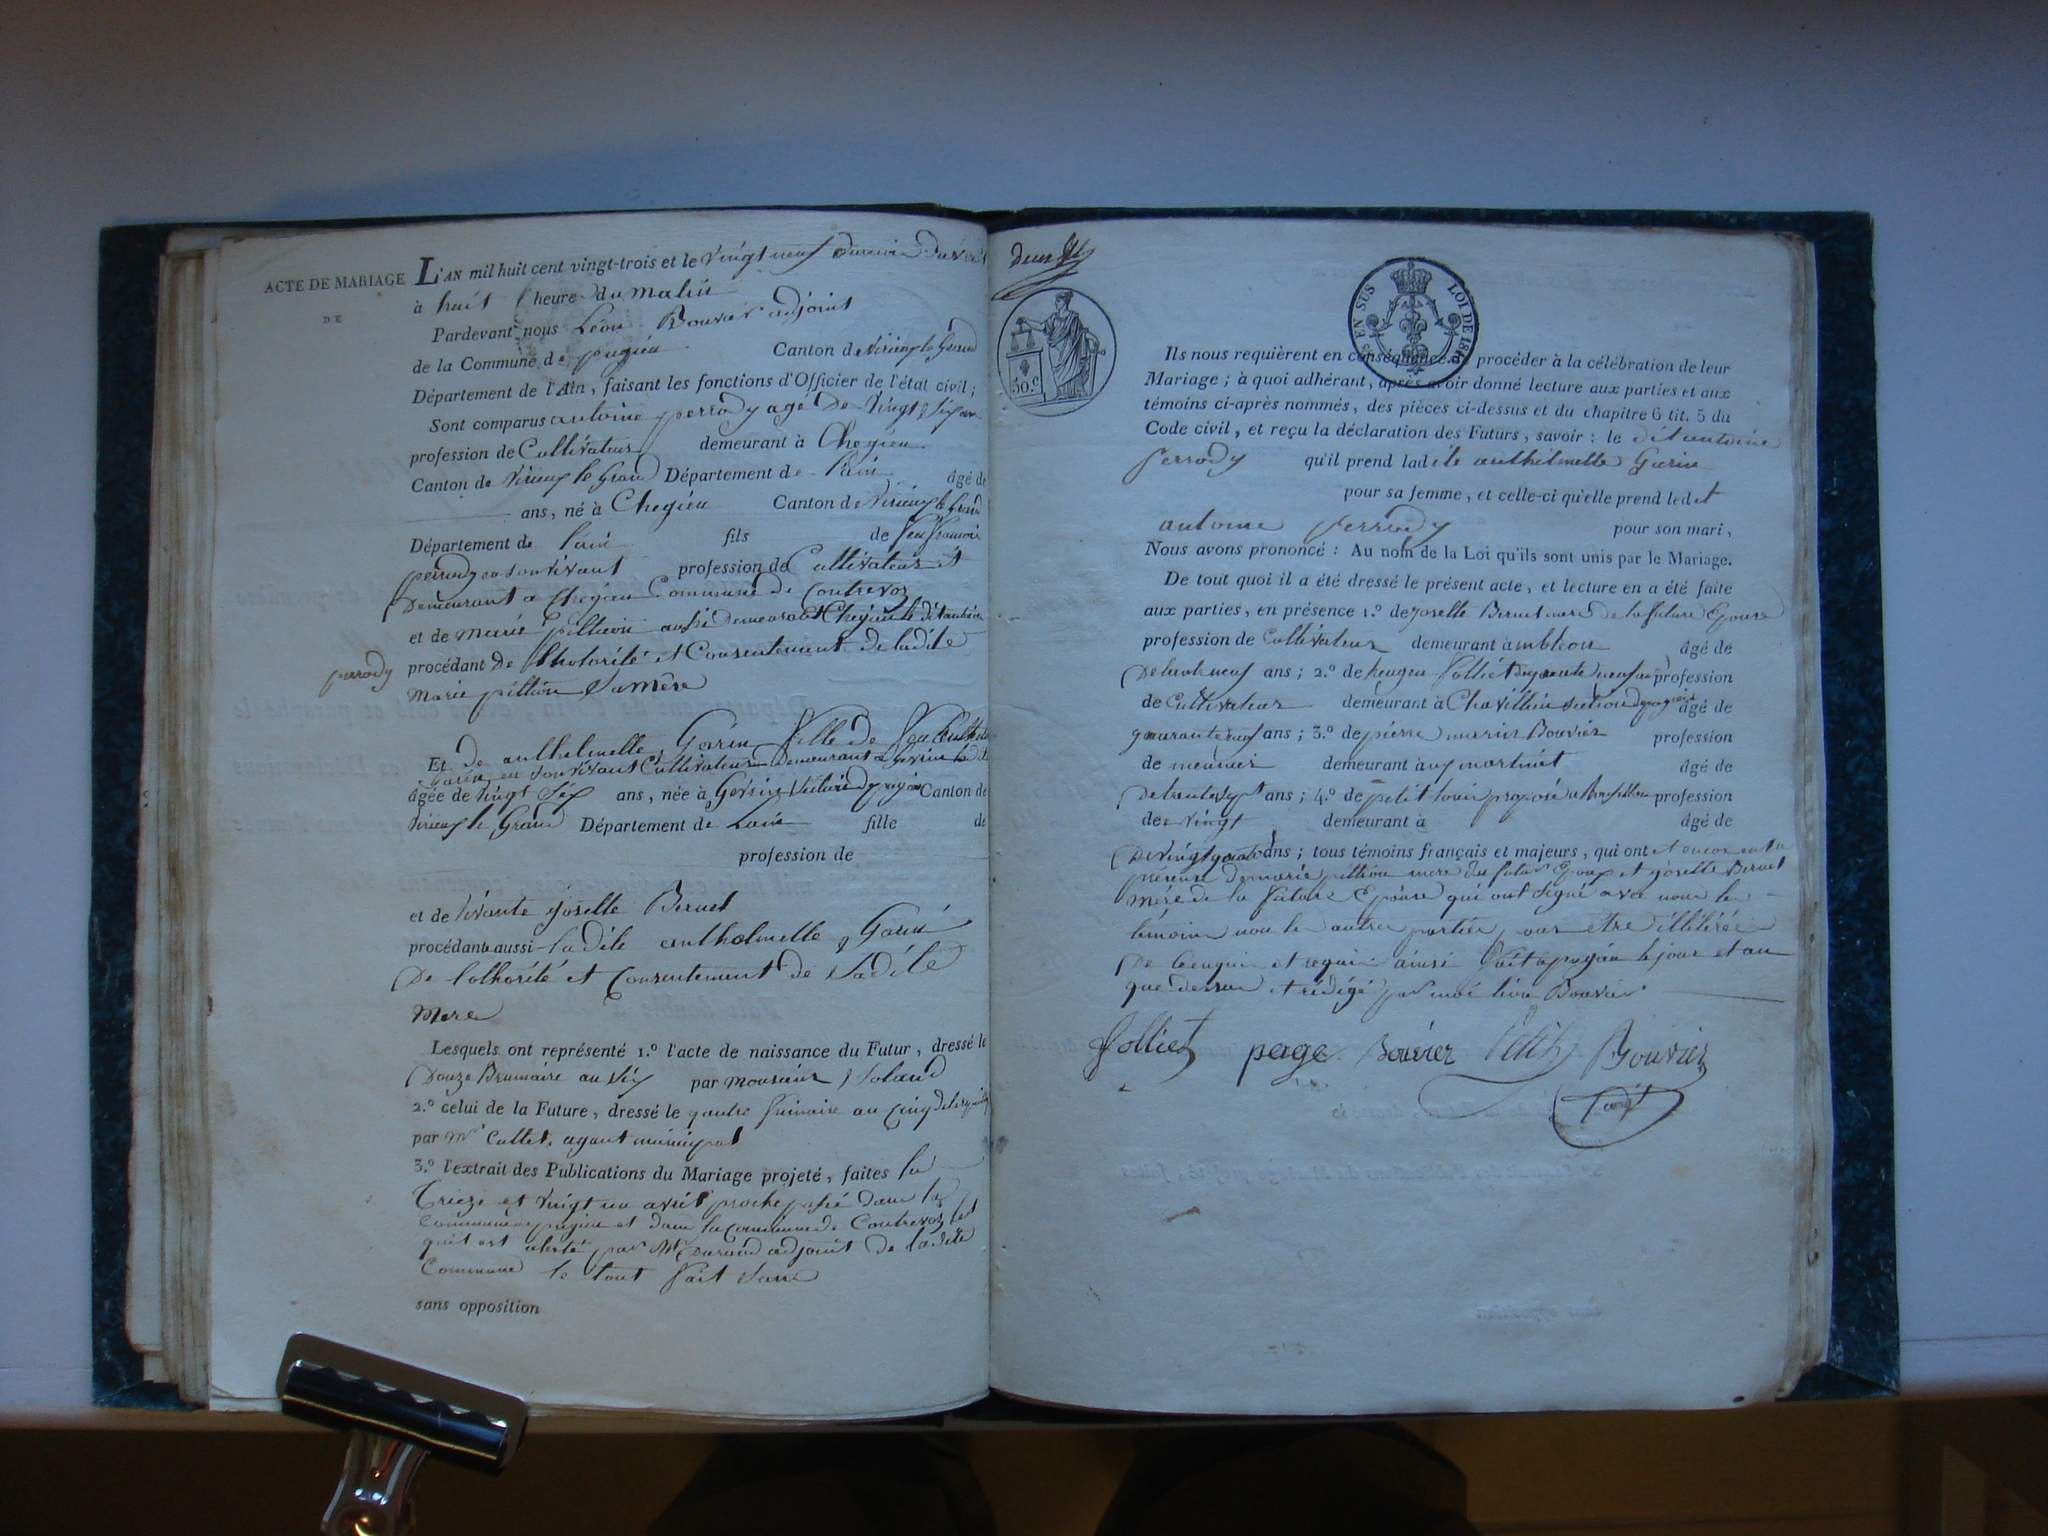 ACTE DE MARIAGE
DE
L'AN mil huit cent vingt-trois et le vingt neuf du mois d'avril
à huit heure du matin
Pardevant nous Léon Bouvier adjoint
de la Commune de pugieu Canton de Virieux le Grand
Département de l'Ain, faisant les fonctions d'Officier de l'état civil;
Sont comparus antoine perrody agé de vingt six ans
profession de Cultivateur demeurant à Chegieu
Canton de Virieux le Grand Département de l'ain âgé de
ans, né à Chegieu Canton de Virieux le Grand
Département de l'ain fils de feu francois
perrody en son vivant profession de Cultivateur et
Demeurant a Chegieu Commune de Contrevoz
et de marie pillion aussi demeurant Chegieu le dit antoine
perrody
procédant De l'hotorité et Consentement de ladite
marie pillion sa mère
Et De anthelmette Gorin fille de feu
Gorin en son vivant Cultivateur Demeurant a
âgée de vingt six ans, née à Canton de
virieux le Grand Département de Lain fille de
profession de
et de vivante joselte Beruet
procédant aussi ladite anthelmette Gorin
De l'othorité et Consentement de sadite
Mere
Lesquels ont représenté 1.º l'acte de naissance du Futur, dressé le
Douze Brumaire an six par monsieur
2.º celui de la Future, dressé le quatre frimaire an cinq
par Mr Cullet, agant municipal
3.º l'extrait des Publications du Mariage projeté, faites le
Treize et vingt un avril proche passé dans la
commune de pugieu et dans la commune de Contrevoz
quit est par Mr Durand adjoint de ladite
Commune le tout fait sans
sans opposition
50.c
25 EN SUS LOI DE 1816
Ils nous requièrent en conséquence de procéder à la célébration de leur
Mariage; à quoi adhérant, après avoir donné lecture aux parties et aux
témoins ci-après nommés, des pièces ci-dessus et du chapitre 6 tit. 5 du
Code civil, et reçu la déclaration des Futurs, savoir: le dit antoine
perrody qu'il prend ladite anthelmette Gorin
pour sa femme, et celle-ci qu'elle prend ledit
antoine perrody pour son mari,
Nous avons prononcé: Au nom de la Loi qu'ils sont unis par le Mariage.
De tout quoi il a été dressé le présent acte, et lecture en a été faite
aux parties, en présence 1.º de joselte Beruet mere de la future Epouse
profession de Cultivateur demeurant à ambleon âgé de
De trente neuf ans; 2.º de folliet quarante neuf ans profession
de Cultivateur demeurant à Chavillieu section de pugieu âgé de
quarante neuf ans; 3.º de pierre marin Bouvier profession
de meunier demeurant à au martinet âgé de
De trente sept ans; 4.º de petit louis préposé a Rossillon profession
de vingt demeurant à âgé de
De vingt quatre ans; tous témoins français et majeurs, qui ont et encore en la
presence de marie pillion mere du futur Epoux et joselte Beruet
mére de la future Epouse qui ont signé avec nous les
temoins non les autres parties pour etre illitérée
De ce enquis et requis ainsi fait a pugieu le jour et an
que dessus et rédigé par moi léon Bouvier
folliet page Bouvier Petit Bouvier
adjt